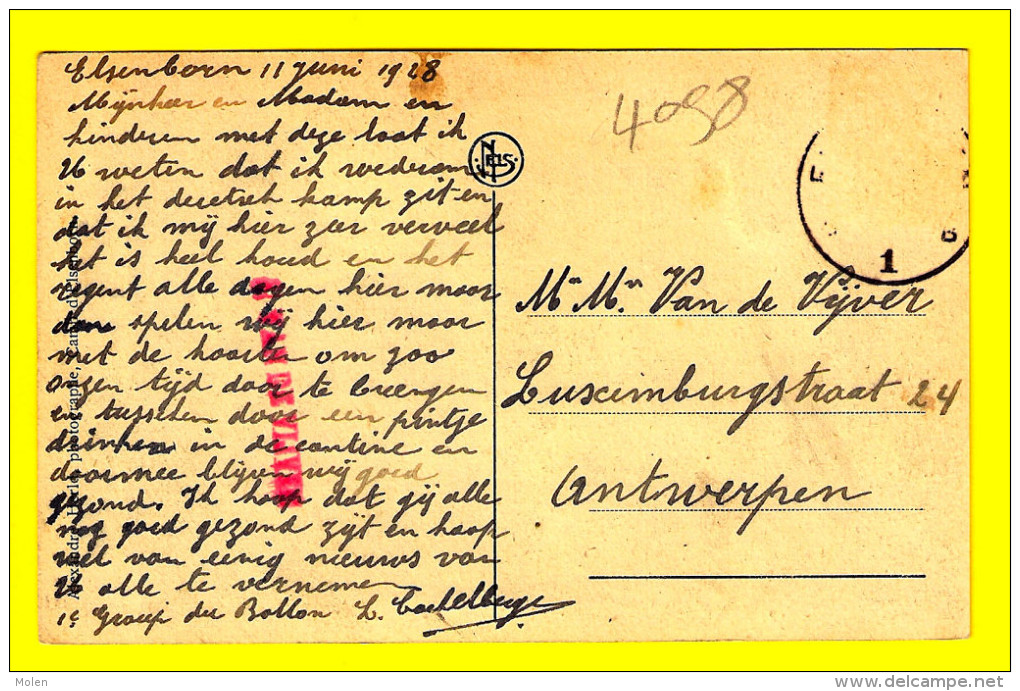 Elsenborn 11 Juni 1928
Mijnheer en Madam en
kinderen met deze laat ik
U weten dat ik wederom
in het kamp zit en
dat ik mij hier zoo verveel
het is heel koud en het
regent alle dagen hier maar
dan spelen wij hier maar
met de kaarten om zoo
onzen tijd door te brengen
en tusschen door een pintje
drinken in de cantine en
daarmee blijven wij goed
gezond. Ik hoop dat gij alle
nog goed gezond zijt en hoop
wel van eenig nieuws van
U alle te vernemen
1e Group der Ballon L.
NELS
4098
1
Mr Mn Van de Vijver
Luxemburgstraat 24
Antwerpen
photographe, Camp d'Elsenborn
Molen
www.delcampe.net